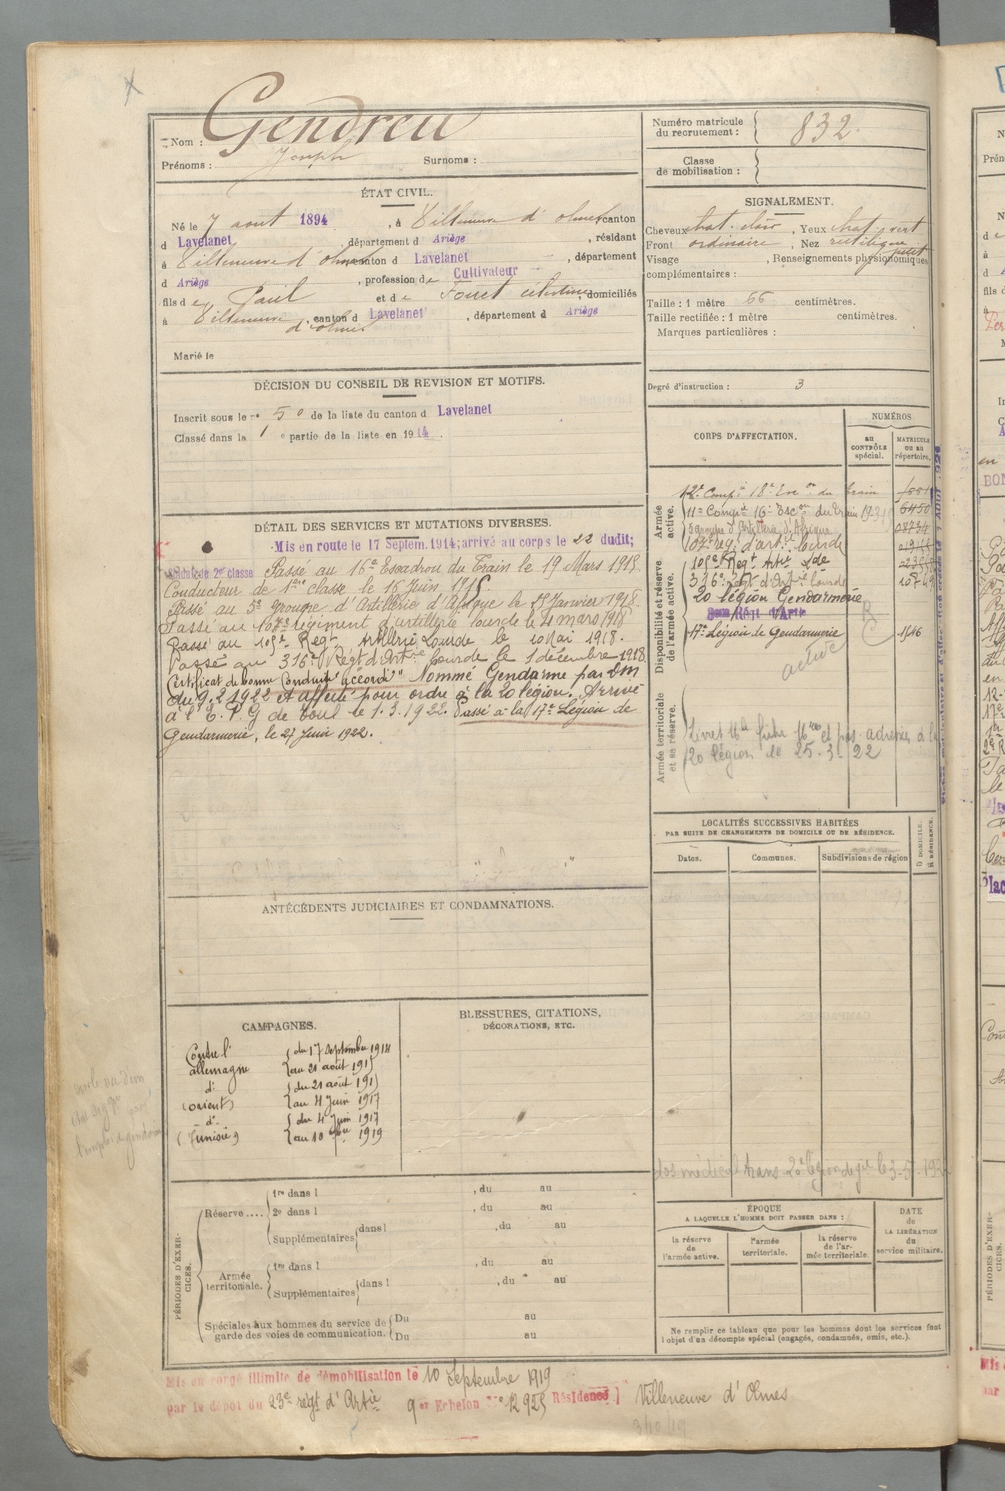 Nom : Gendreu
Prénoms : Joseph Surnoms :
Numéro matricule du recrutement : 832
Classe de mobilisation :
ÉTAT CIVIL.
Né le 7 aout 1894, à Villeneuve d'olmes canton
d Lavelanet, département d Ariège, résidant
à Villeneuve d'olmes canton d Lavelanet, département
d Ariège, profession de Cultivateur
fils de Paul et de Fouet célestine, domiciliés
à Villeneuve d'olmes, canton d Lavelanet, département d Ariège
Marié le
SIGNALEMENT.
Cheveux chat. clair, Yeux chat. vert
Front ordinaire, Nez rectiligne petit
Visage, Renseignements physionomiques
complémentaires :
Taille : 1 mètre 66 centimètres.
Taille rectifiée : 1 mètre centimètres.
Marques particulières :
Degré d'instruction : 3
DÉCISION DU CONSEIL DE REVISION ET MOTIFS.
Inscrit sous le n° 50 de la liste du canton d Lavelanet
Classé dans la 1e partie de la liste en 1914.
DÉTAIL DES SERVICES ET MUTATIONS DIVERSES.
Mis en route le 17 Septem. 1914; arrivé au corps le 22 dudit;
soldat de 2e classe Passé au 16e Escadron du Train le 19 Mars 1915.
Conducteur de 1ère classe le 16 Juin 1915.
Passé au 5e groupe d'Artillerie d'Afrique le 15 Janvier 1918.
Passé au 107e régiment d'artillerie lourde le 21 mars 1918
Passé au 105e Regt Artillerie Lourde le 10 Mai 1918.
Passé au 316e Régt d'Artie Lourde le 1 décembre 1918
Certificat de bonne Conduite "accordé" Nommé Gendarme par DM
du 9.2.1922 et affecté pour ordre à la 20 légion. Arrivé
à l'E. P. G de Toul le 1.3.1922. Passé à la 17e Légion de
Gendarmerie, le 27 Juin 1922.
CORPS D'AFFECTATION.
NUMÉROS
au CONTRÔLE spécial.
MATRICULE ou au répertoire.
Armée active.
12e Compie 18e Escon du train
11e Compie 16e Escon du Train 6450
5 groupe d'Artillerie d'Afrique
107e reg. d'artie lourde
Disponibilité et réserve de l'armée active.
105e Regt Artie Lde
316e Regt d'Artie lourde
20 légion Gendarmerie
17e Légion de Gendarmerie 1646
active
Armée territoriale et sa réserve.
20 légion le 25.3.22
LOCALITÉS SUCCESSIVES HABITÉES
PAR SUITE DE CHANGEMENTS DE DOMICILE OU DE RÉSIDENCE.
Dates. Communes. Subdivisions de région D. DOMICILE. R. RÉSIDENCE.
ANTÉCÉDENTS JUDICIAIRES ET CONDAMNATIONS.
CAMPAGNES.
Contre l' allemagne du 17 Septembre 1914 au 21 août 1915
d° (orient) du 21 août 1915 au 4 Juin 1917
d° (Tunisie) du 4 Juin 1917 au 10 1919
BLESSURES, CITATIONS,
DÉCORATIONS, ETC.
PÉRIODES D'EXERCICES.
Réserve....
1re dans l , du au
2e dans l , du au
Supplémentaires dans l , du au
Armée territoriale.
1re dans l , du au
Supplémentaires dans l , du au
Spéciales aux hommes du service de garde des voies de communication.
Du au
Du au
ÉPOQUE
A LAQUELLE L'HOMME DOIT PASSER DANS :
la réserve de l'armée active.
l'armée territoriale.
la réserve de l'armée territoriale.
DATE de LA LIBÉRATION du service militaire.
Ne remplir ce tableau que pour les hommes dont les services font
l'objet d'un décompte spécial (engagés, condamnés, omis, etc.).
Mis en congé illimité de démobilisation le 10 Septembre 1919
par le dépot du 23e régt d'Artie 9er Echelon n° 12925 Résidence Villeneuve d'Olmes